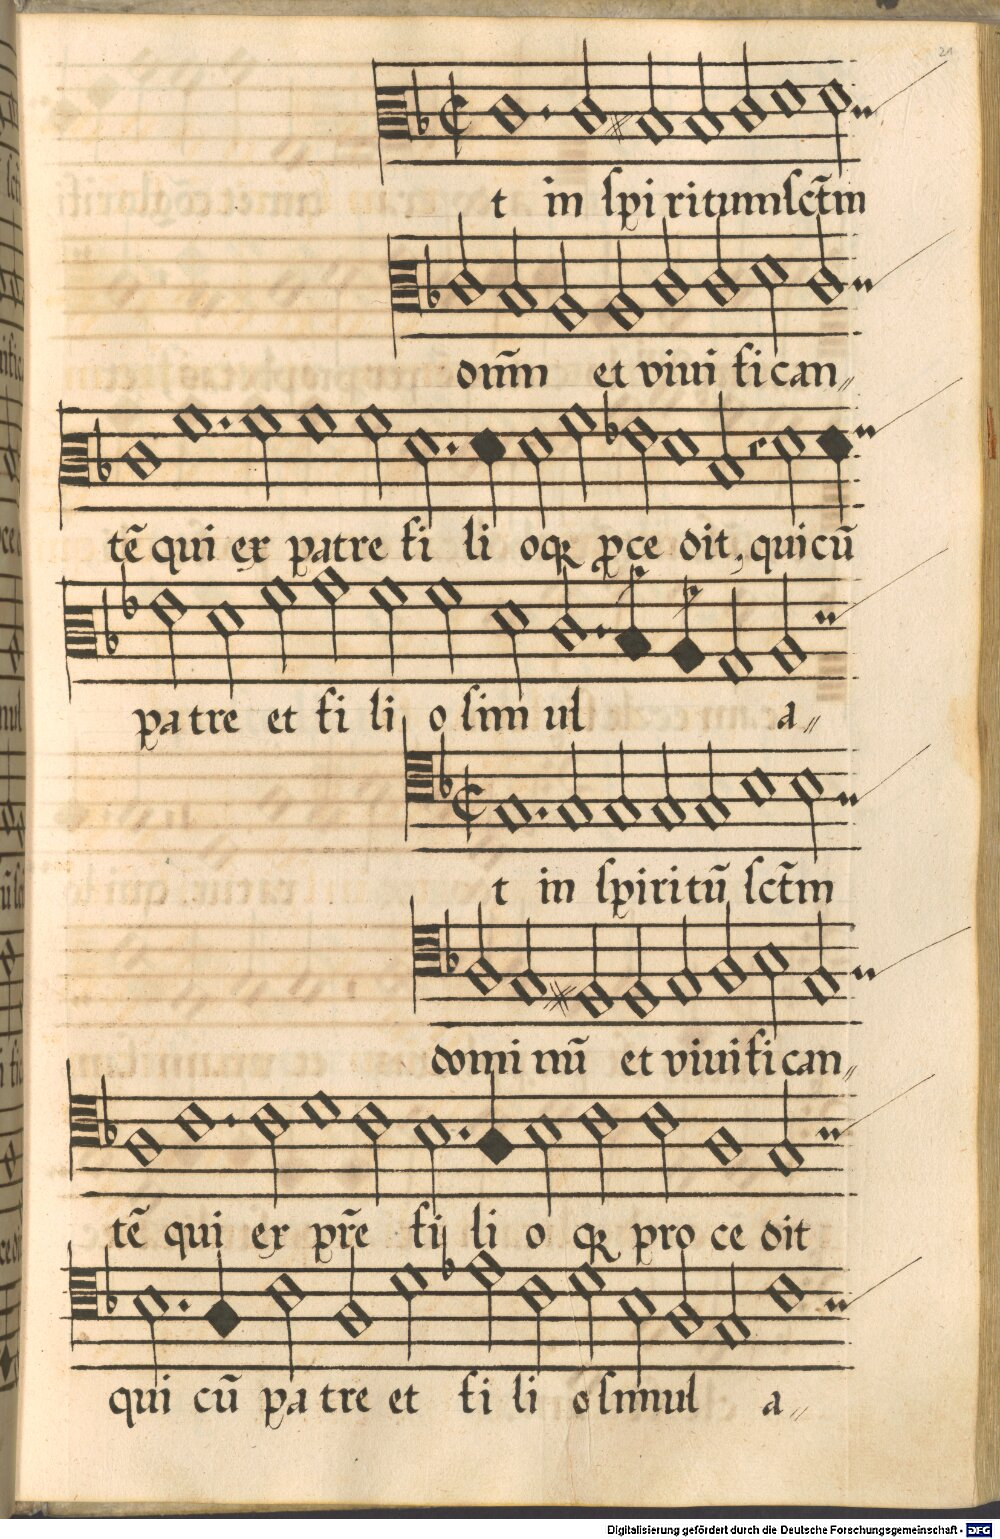 21
t in spi ritum sct̄m
dnm̄ et vivi fi can„
tē qui ex patre fi li oqꝫ ꝓce dit, qui cū
pa tre et fi li o sim ul a„
t in spiritū sct̄m
domi nū et vivifi can„
tē qui ex pr̄e fi li o qꝫ pro ce dit
qui cū pa tre et fi li o simul a„
Digitalisierung gefördert durch die Deutsche Forschungsgemeinschaft - DFG